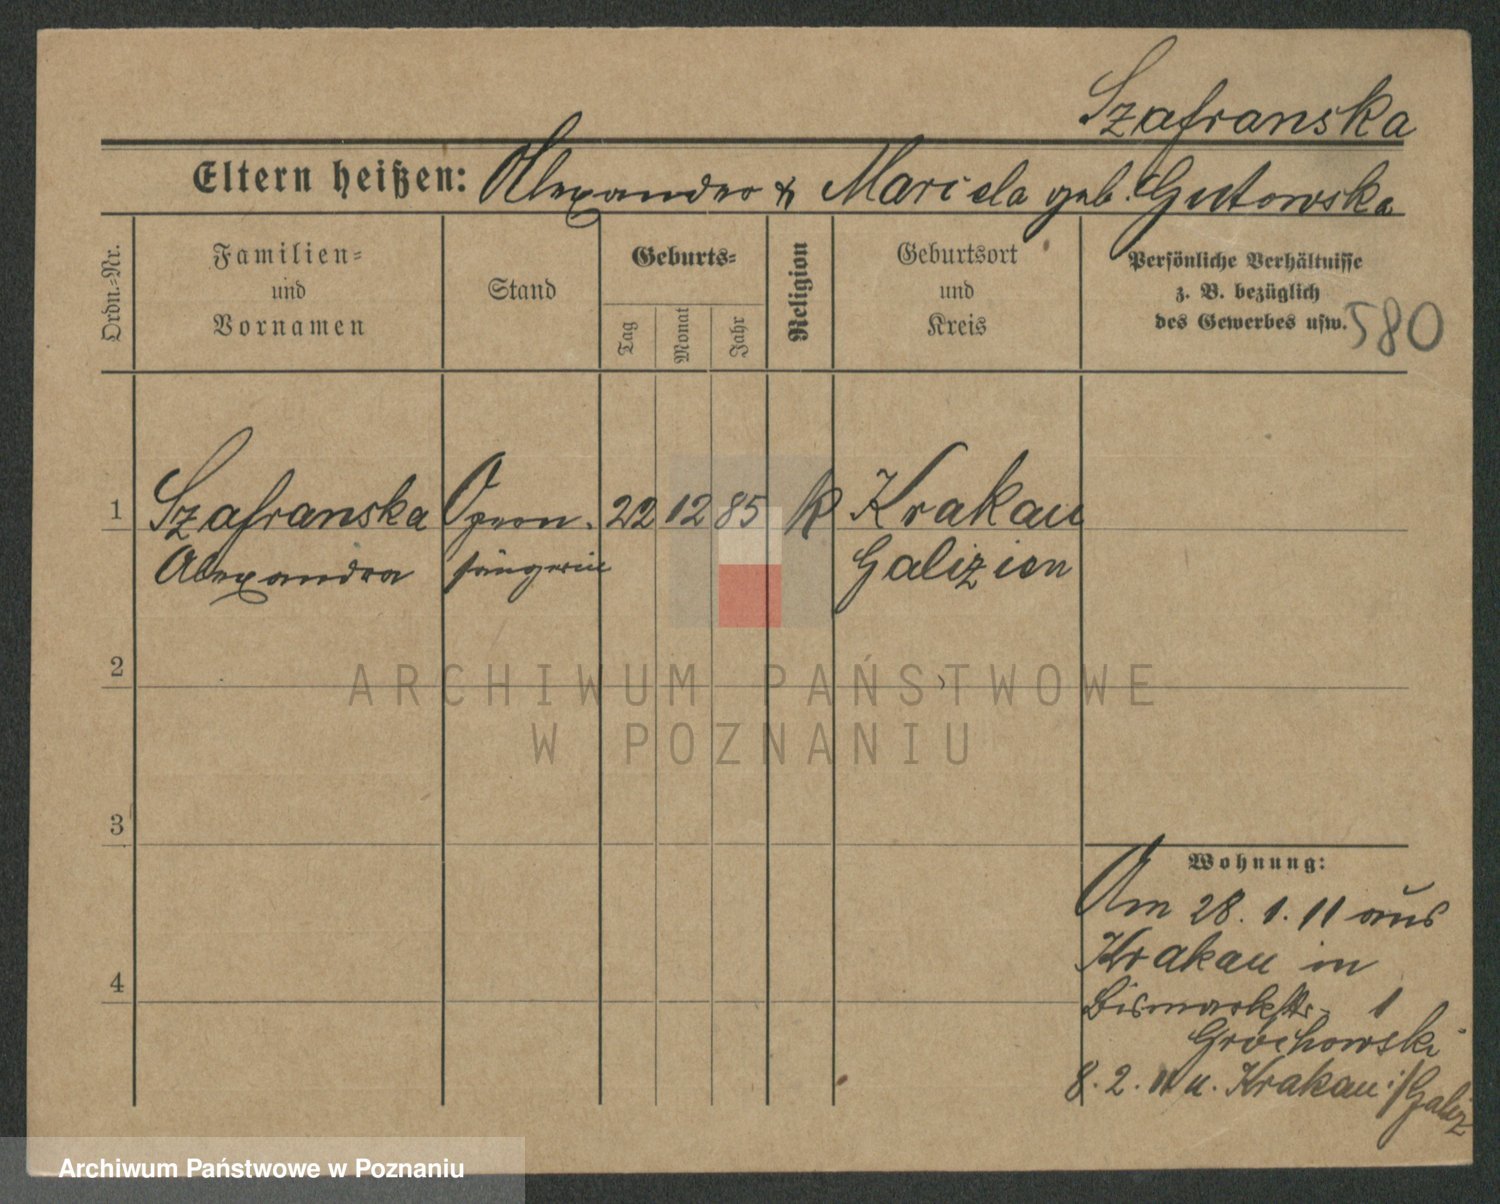 Szafranska
Eltern heißen: Alexander & Mariela geb. Gutowska
Ordn.-Nr.
Familien-
und
Vornamen
Stand
Geburts-
Tag
Monat
Jahr
Religion
Geburtsort
und
Kreis
Persönliche Verhältnisse
z. B. bezüglich
des Gewerbes usw.
580
1 Szafranska Opern- 22 12 85 k Krakau
Alexandra sängerin Galizien
2
ARCHIWUM PAŃSTWOWE
W POZNANIU
3
Wohnung:
Am 28. 1. 11 aus
Krakau in
4
Bismarckstr. 1
Grochowski
8. 2. 11 n. Krakau /Galiz
Archiwum Państwowe w Poznaniu